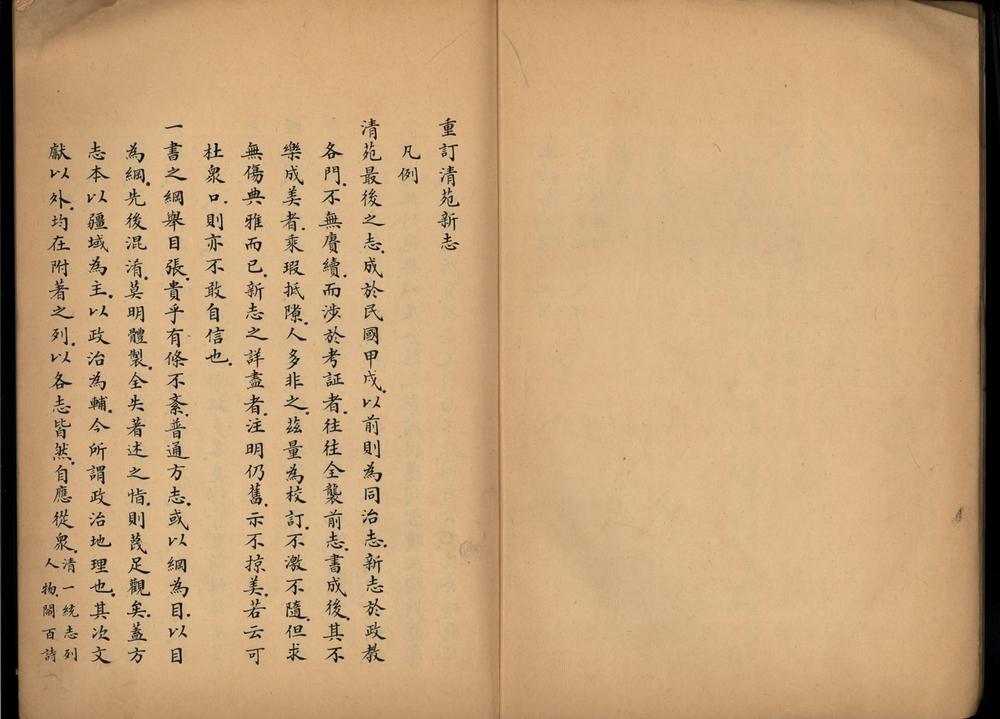 重訂清苑新志
凡例
清苑最後之志.成於民國甲戌.以前則為同治志.新志於政教
各門.不無賡續而涉於考証者.往往全襲前志.書成後.其不
樂成美者.乘瑕抵隙.人多非之.茲量為校訂.不激不隨.但求
無傷典雅而已.新志之詳盡者.注明仍舊.示不掠美.若云可
杜衆口.則亦不敢自信也.
一書之綱舉目張.貴乎有條不紊.普通方志.或以綱為目.以目
為綱.先後混淆.莫明體製.全失著述之恉.則蔑足觀矣.蓋方
志本以疆域為主.以政治為輔.今所謂政治地理也.其次文
獻以外.均在附著之列.以各志皆然.自應從衆.清一統志列
人物.閻百詩